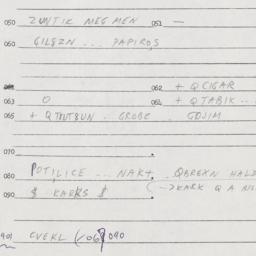 050 ZUNTIK MEGMEN 051 —
060 GILSZN ... PAPIROS
062 + QCIGAR
063 0 064 + QTABIK ..
065 + QTKUTSUN . GROBE . GOJIM
070
080 POTILICE ... NAKT . QBREXN HALD
090 $ KARKS $ (→KARK Q A NI
090